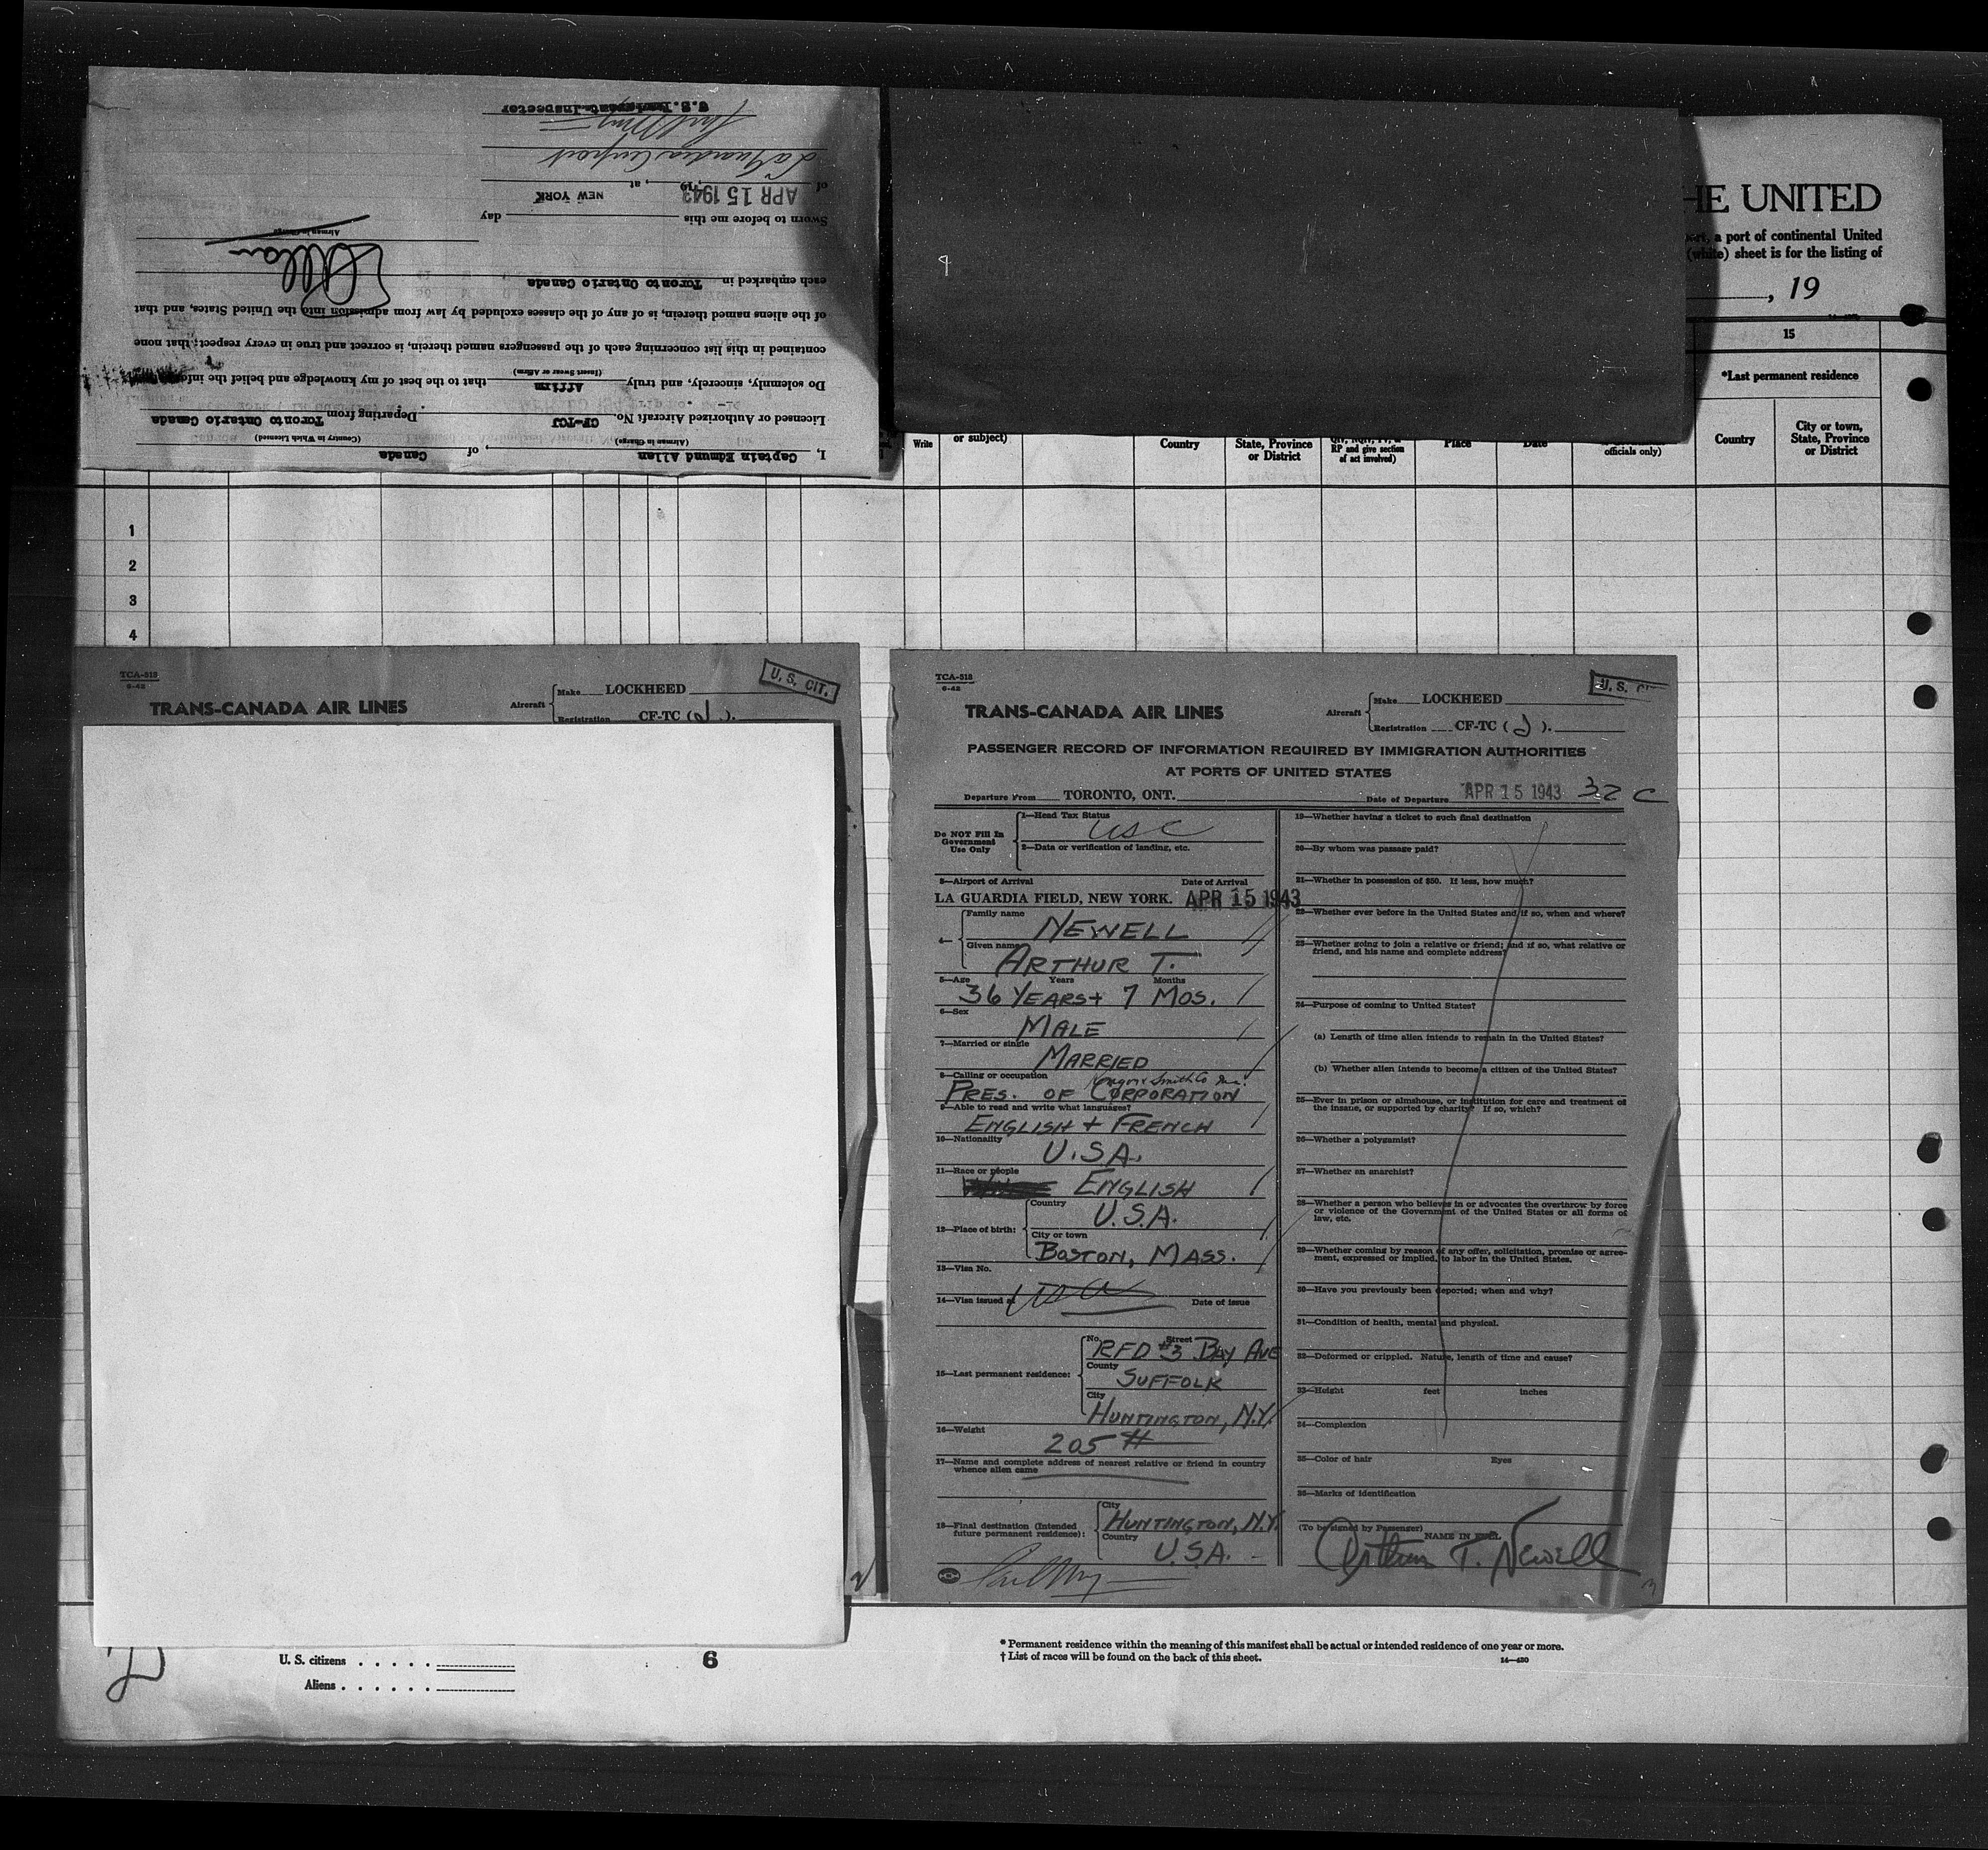 I, Captain Edmund Allan, of Canada
(Airman in Charge) (Country in Which Licensed)
Licensed or Authorized Aircraft No. CF-TCJ Departing from Toronto Ontario Canada
Do solemnly, sincerely, and truly Affirm that to the best of my knowledge and belief the
(Insert Swear or Affirm)
contained in this list concerning each of the passengers named therein, is correct and true in every respect; that none
of the aliens named therein, is of any of the classes excluded by law from admission into the United States, and that
each embarked in Toronto Ontario Canada
Allan
Airman in Charge
Sworn to before me this day
of APR 15 1943, 19 , at NEW YORK
La Guardia Airport
U.S. Inspector
HE UNITED
, a port of continental United
(white) sheet is for the listing of
, 19
15
*Last permanent residence
Write
or subject)
Country
State, Province
or District
RP and give section
of act involved)
Place
Date
officials only)
Country
City or town,
State, Province
or District
1
2
3
4
TCA-518
6-42
U. S. CIT.
TRANS-CANADA AIR LINES
Aircraft
Make LOCKHEED
Registration CF-TC (J).
TCA-518
6-42
U. S.
TRANS-CANADA AIR LINES
Aircraft
Make LOCKHEED
Registration CF-TC (J).
PASSENGER RECORD OF INFORMATION REQUIRED BY IMMIGRATION AUTHORITIES
AT PORTS OF UNITED STATES
Departure From TORONTO, ONT. Date of Departure APR 15 1943 32 C
Do NOT Fill In
Government
Use Only
1—Head Tax Status
USC
2—Data or verification of landing, etc.
3—Airport of Arrival Date of Arrival
LA GUARDIA FIELD, NEW YORK. APR 15 1943
4—
Family name
NEWELL
Given name
ARTHUR T.
5—Age Years Months
36 YEARS + 7 MOS.
6—Sex
MALE
7—Married or single
MARRIED
8—Calling or occupation
Smith Co Inc.
PRES. OF CORPORATION
9—Able to read and write what languages?
ENGLISH + FRENCH
10—Nationality
U.S.A.
11—Race or people
ENGLISH
12—Place of birth:
Country
U.S.A.
City or town
BOSTON, MASS.
13—Visa No.
14—Visa issued at Date of issue
15—Last permanent residence:
No. Street
RFD #3 BAY AVE
County
SUFFOLK
City
HUNTINGTON, N.Y.
16—Weight
205 #
17—Name and complete address of nearest relative or friend in country
whence alien came
18—Final destination (Intended
future permanent residence):
City
HUNTINGTON, N.Y.
Country
U.S.A.
19—Whether having a ticket to such final destination
20—By whom was passage paid?
21—Whether in possession of $50. If less, how much?
22—Whether ever before in the United States and if so, when and where?
23—Whether going to join a relative or friend; and if so, what relative or
friend, and his name and complete address?
24—Purpose of coming to United States?
(a) Length of time alien intends to remain in the United States?
(b) Whether alien intends to become a citizen of the United States?
25—Ever in prison or almshouse, or institution for care and treatment of
the insane, or supported by charity? If so, which?
26—Whether a polygamist?
27—Whether an anarchist?
28—Whether a person who believes in or advocates the overthrow by force
or violence of the Government of the United States or all forms of
law, etc.
29—Whether coming by reason of any offer, solicitation, promise or agree-
ment, expressed or implied, to labor in the United States.
30—Have you previously been deported; when and why?
31—Condition of health, mental and physical.
32—Deformed or crippled. Nature, length of time and cause?
33—Height feet inches
34—Complexion
35—Color of hair Eyes
36—Marks of identification
(To be signed by Passenger) NAME IN FULL
Arthur T. Newell
U. S. citizens
Aliens
6
* Permanent residence within the meaning of this manifest shall be actual or intended residence of one year or more.
† List of races will be found on the back of this sheet.
14—420